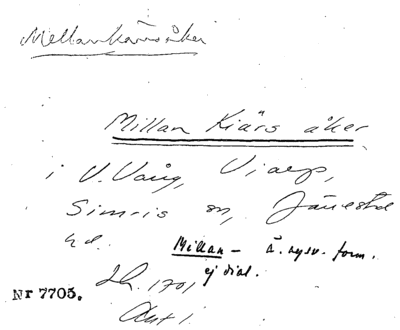 Mellankärsåker
Millan Kiärs åker,
i V. Vång, Viarp,
Simris sn, Järrestad
hd.
Millan - ä. nysv. form.
ej dial.
Lh. 1701
Nr 7705.
Akt 1.